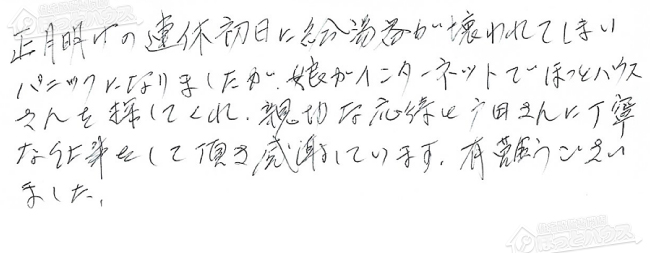 正月明けの連休初日に給湯器が壊われてしまい
パニックになりましたが、娘がインターネットでほっとハウス
さんを探してくれ、親切な応待と戸田さんに丁寧
な仕事をして頂き感謝しています。有難うござい
ました。
ほっとハウス